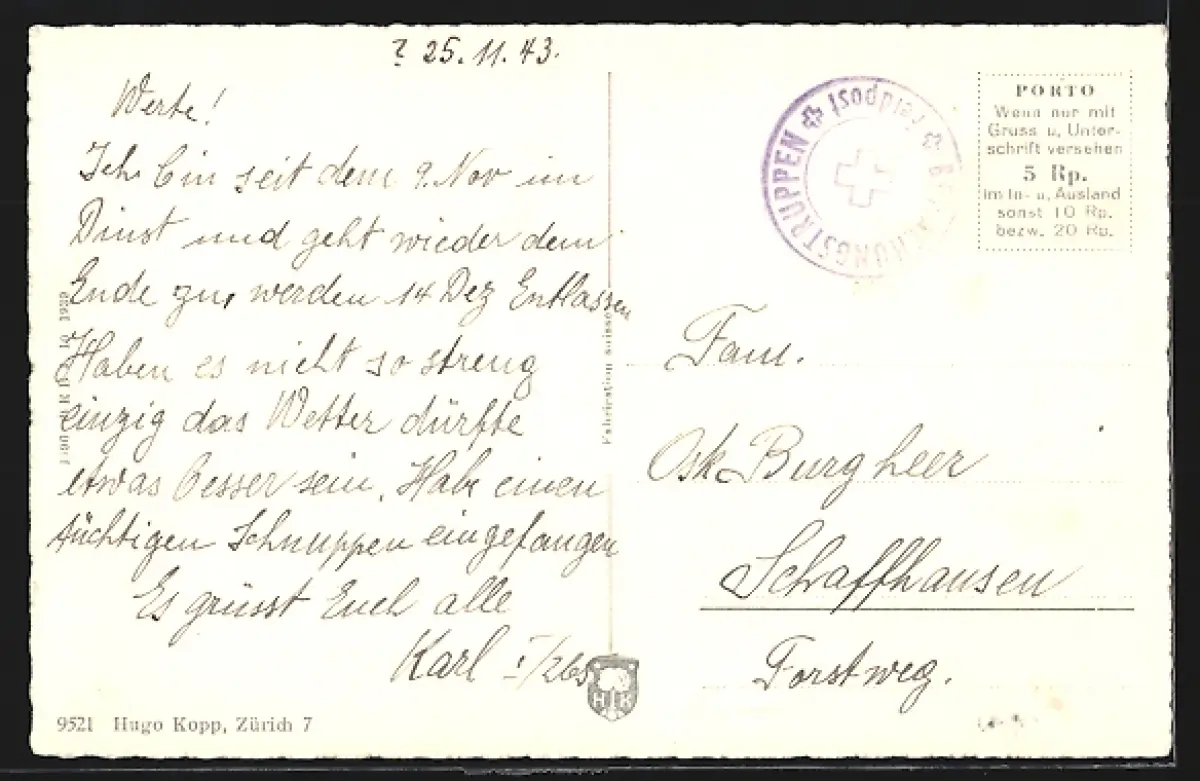 ? 25. 11. 43.
Werte!
Ich bin seit dem 9. Nov im
Dinst und geht wieder dem
Ende zu, werden 14 Dez Entlassen
Haben es nicht so streng
einzig das Wetter dürfte
etwas besser sein. Habe einen
tüchtigen Schnuppen eingefangen
Es grüsst Euch alle
Karl I/265
9521 Hugo Kopp, Zürich 7
1939
Fabrication suisse
HK
Feldpost
BEWACHUNGSTRUPPEN
PORTO
Wenn nur mit
Gruss u. Unter-
schrift versehen
5 Rp.
im In- u. Ausland
sonst 10 Rp.
bezw. 20 Rp.
Fam.
Osk Burgheer
Schaffhausen
Forstweg.